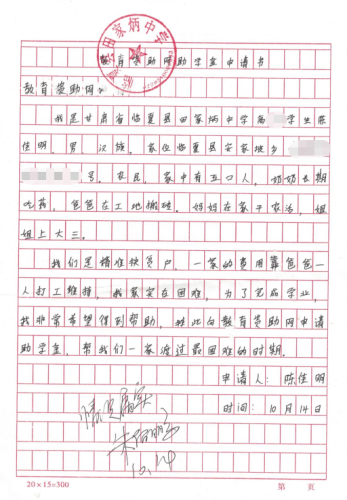 田家炳中
教育资助网助学金申请书
教育资助网:
我是甘肃省临夏县田家炳中学高 学生陈
佳明。男 汉族。家住临夏县安家坡乡
号。农民。家中有五口人,奶奶长期
吃药,爸爸在工地搬砖。妈妈在家干农活,姐
姐上大三。
我们是精准扶贫户,一家的费用靠爸爸一
人打工维持,我家实在困难,为了完品学业,
我非常希望得到帮助,特此向教育资助网申请
助学金,帮我们一家渡过最困难的时期。
申请人:陈佳明
时间:10月14日
情况属实
10.14
20×15=300
第 页